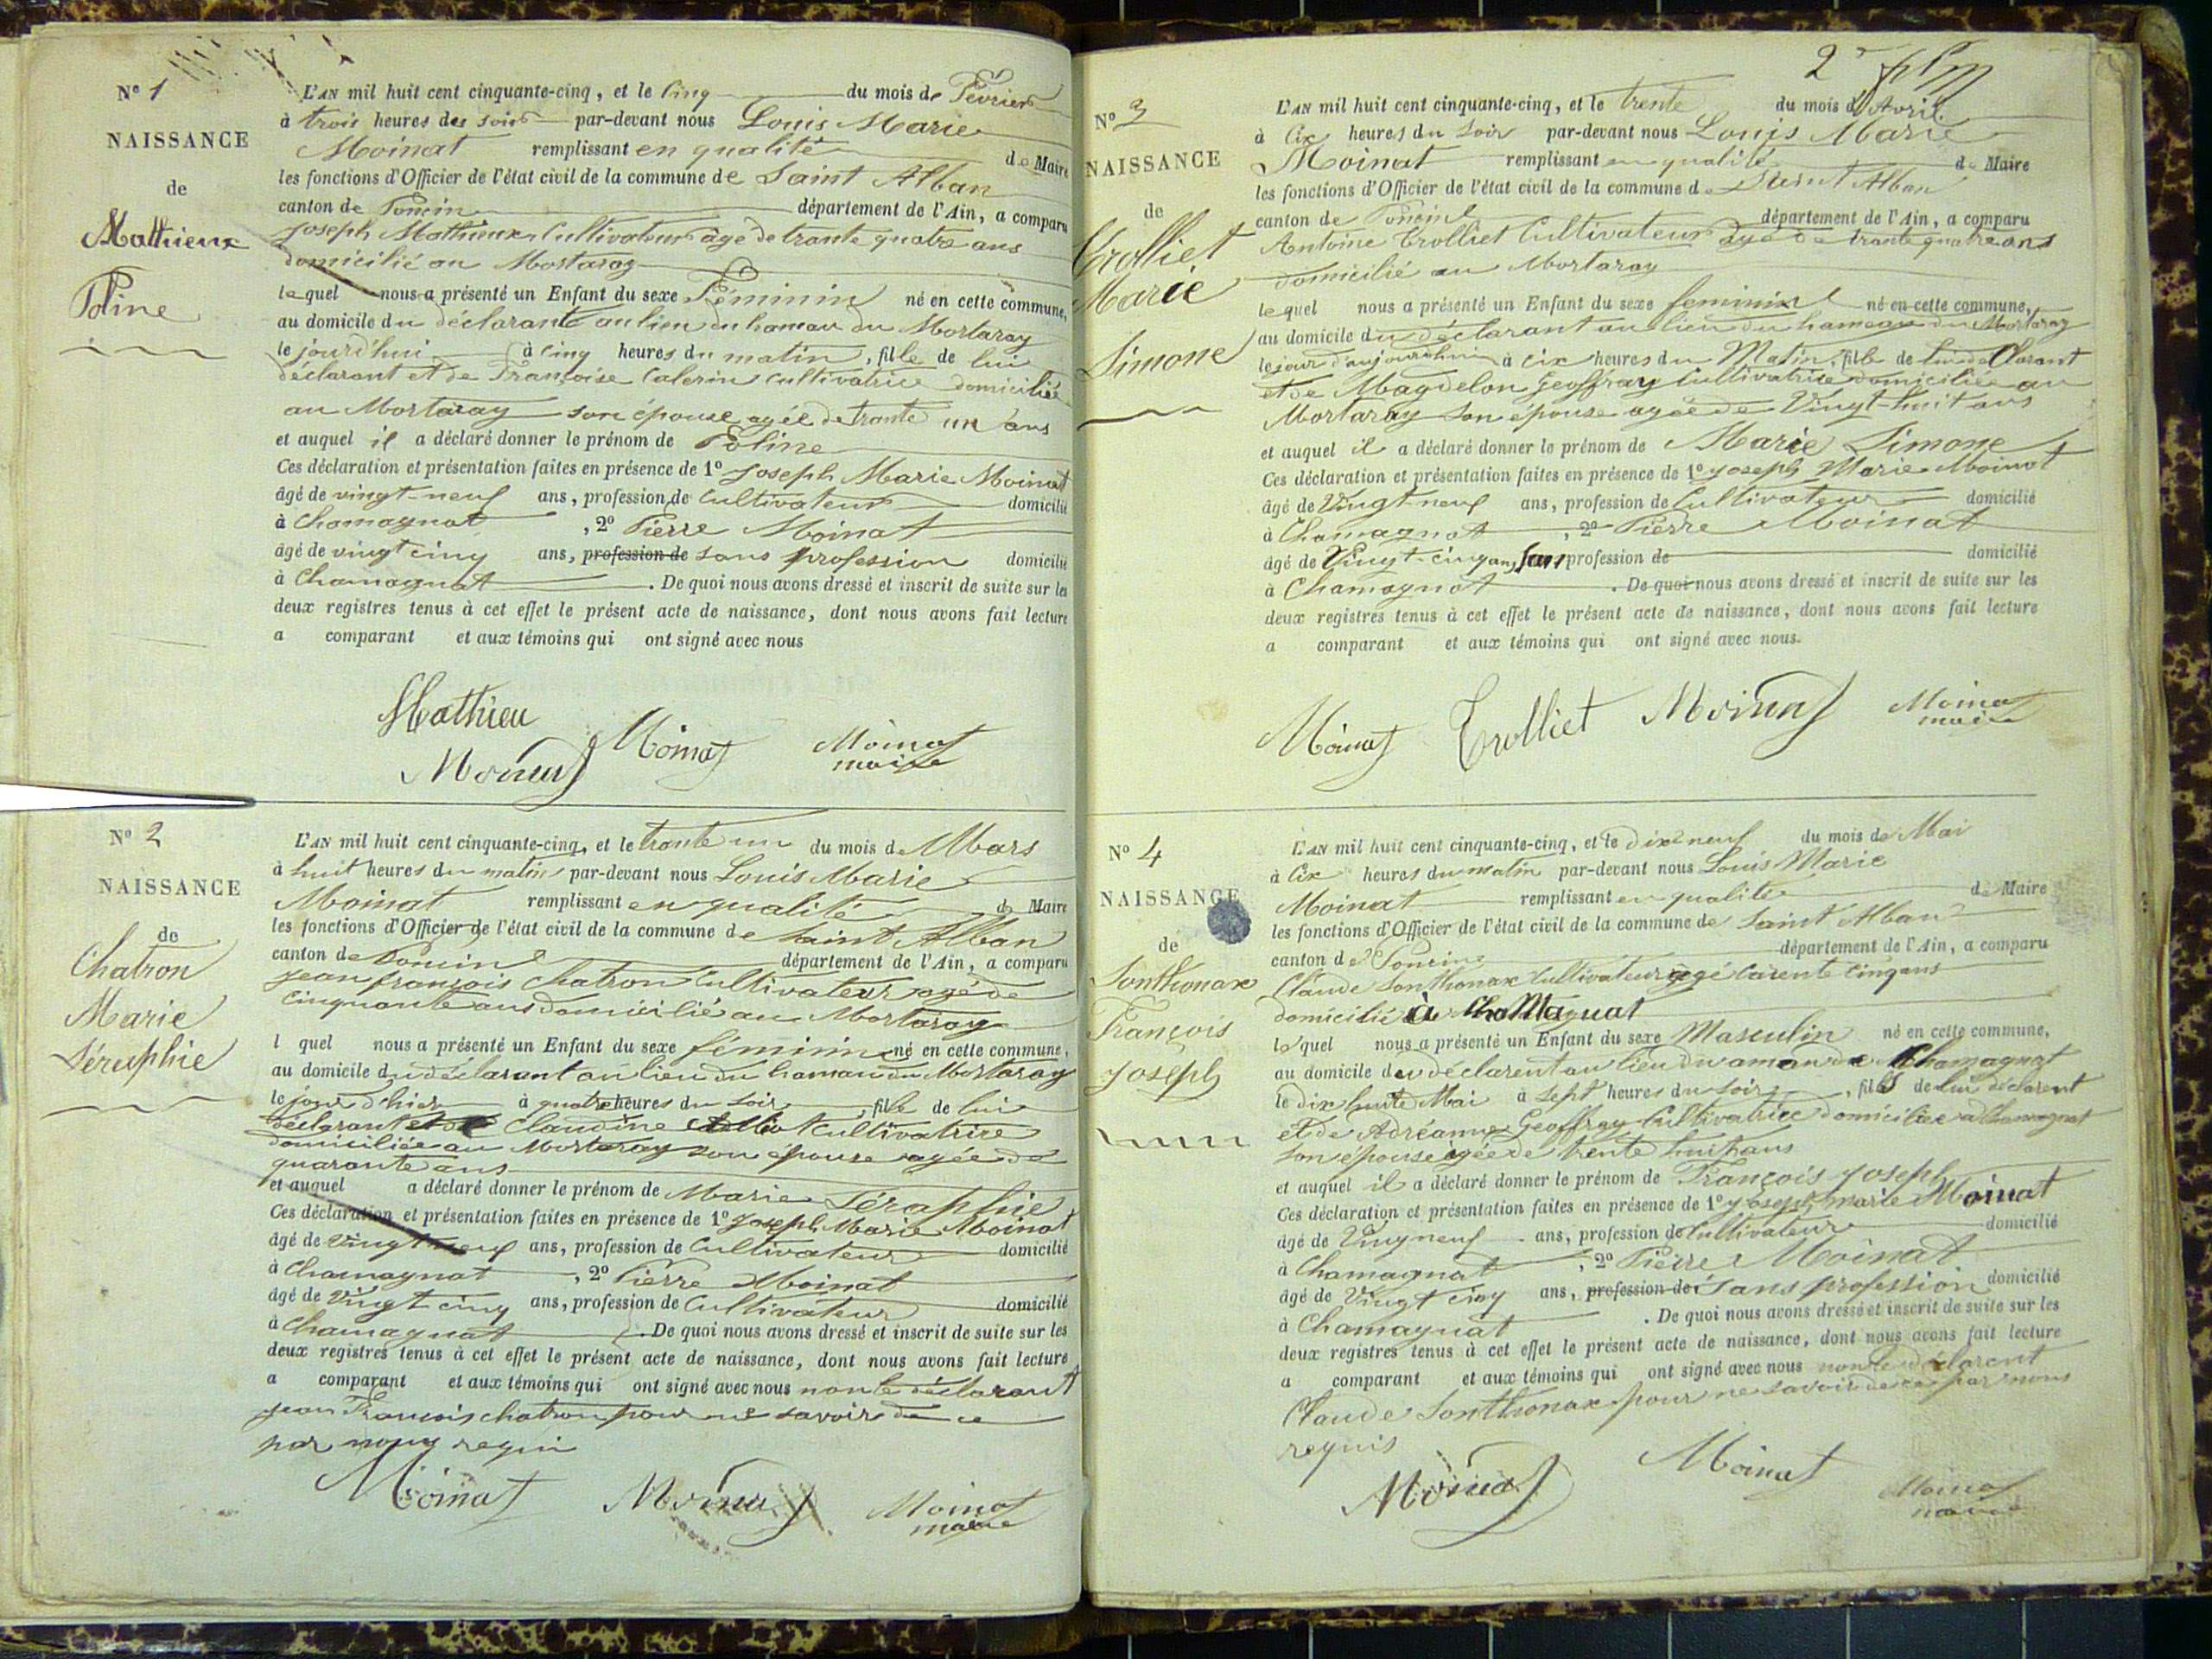 N° 1
NAISSANCE
de
Mathieux
Poline
L'AN mil huit cent cinquante-cinq, et le cinq du mois de Fevrier
à trois heures des soir par-devant nous Louis Marie
Moinat remplissant en qualité de Maire
les fonctions d'Officier de l'état civil de la commune de Saint Alban
canton de Poncin département de l'Ain, a comparu
joseph Mathieux Cultivateur âgé de trante quatre ans
domicilié au Mortaray
lequel nous a présenté un Enfant du sexe Féminin né en cette commune,
au domicile du déclarante au lieu du hamau du Mortaray
le jourd'hui à cinq heures du matin, fille de lui
déclarant et de Françoise Calerin Cultivatrice domiciliée
au Mortaray son épouse agée de trante un ans
et auquel il a déclaré donner le prénom de Poline
Ces déclaration et présentation faites en présence de 1° joseph Marie Moinat
âgé de vingt-neuf ans, profession de Cultivateur domicilié
à Chamagnat, 2° Pierre Moinat
âgé de vingt cinq ans, profession de sans profession domicilié
à Chamagnat. De quoi nous avons dressé et inscrit de suite sur les
deux registres tenus à cet effet le présent acte de naissance, dont nous avons fait lecture
a comparant et aux témoins qui ont signé avec nous
Mathieu
Moinat Moinat Moinat
maire
N° 2
NAISSANCE
de
Chatron
Marie
Séraphie
L'AN mil huit cent cinquante-cinq, et le trante un du mois de Mars
à huit heures du matin par-devant nous Louis Marie
Moinat remplissant en qualité de Maire
les fonctions d'Officier de l'état civil de la commune de Saint Alban
canton de Poncin département de l'Ain, a comparu
jean françois Chatron Cultivateur agé de
cinquante ans domicilié au Mortaray
l quel nous a présenté un Enfant du sexe féminin né en cette commune,
au domicile du déclarant au lieu du hamau du Mortaray
le jour d'hier à quatre heures du soir, fille de lui
déclarant et de Claudine Cultivatrice
domiciliée au Mortaray son épouse agée de
quarante ans
et auquel a déclaré donner le prénom de Marie Séraphie
Ces déclaration et présentation faites en présence de 1° joseph Marie Moinat
âgé de vingt neuf ans, profession de Cultivateur domicilié
à Chamagnat, 2° Pierre Moinat
âgé de Vingt cinq ans, profession de Cultivateur domicilié
à Chamagnat. De quoi nous avons dressé et inscrit de suite sur les
deux registres tenus à cet effet le présent acte de naissance, dont nous avons fait lecture
a comparant et aux témoins qui ont signé avec nous non le déclarant
jean François chatron pour ne savoir de ce
par nous requi
Moinat Moinat Moinat
maire
2e
N° 3
NAISSANCE
de
Trolliet
Marie
Simone
L'AN mil huit cent cinquante-cinq, et le trente du mois d'Avril
à Cix heures du Soir par-devant nous Louis Marie
Moinat remplissant en qualité de Maire
les fonctions d'Officier de l'état civil de la commune de Saint Alban
canton de Poncin département de l'Ain, a comparu
Antoine Trolliet Cultivateur agé de trante quatre ans
domicilié au Mortaray
lequel nous a présenté un Enfant du sexe feminin né en cette commune,
au domicile du déclarant au lieu du hameau du Mortaray
le jour d'aujourdhui à cix heures du Matin, fille de lui de Clarant
et de Magdelon Geoffray Cultivatrice domiciliée au
Mortaray son épouse agée de Vingt-huit ans
et auquel il a déclaré donner le prénom de Marie Simone
Ces déclaration et présentation faites en présence de 1° joseph Marie Moinat
âgé de Vingt-neuf ans, profession de Cultivateur domicilié
à Chamagnat, 2° Pierre Moinat
âgé de Vingt-cinq ans, sans profession de domicilié
à Chamagnat. De quoi nous avons dressé et inscrit de suite sur les
deux registres tenus à cet effet le présent acte de naissance, dont nous avons fait lecture
a comparant et aux témoins qui ont signé avec nous.
Moinat Trolliet Moinat Moinat
maire
N° 4
NAISSANCE
de
Sonthonax
François
joseph
L'AN mil huit cent cinquante-cinq, et le dixe neuf du mois de Mai
à Cix heures du matin par-devant nous Louis Marie
Moinat remplissant en qualité de Maire
les fonctions d'Officier de l'état civil de la commune de Saint Alban
canton de Poncin département de l'Ain, a comparu
Claude Sonthonax Cultivateur agé Carente cinq ans
domicilié à Chamagnat
lequel nous a présenté un Enfant du sexe Masculin né en cette commune,
au domicile du déclarent au lieu du amau de Chamagnat
le dix huite Mai à sept heures du soir, fils de lui déclarent
et de Adréanne Geoffray Cultivatrice domiciliée a Chamagnat
son épouse agée de trente huit ans
et auquel il a déclaré donner le prénom de François joseph
Ces déclaration et présentation faites en présence de 1° joseph marie Moinat
âgé de Vingneuf ans, profession de Cultivateur domicilié
à Chamagnat, 2° Pierre Moinat
âgé de Vingt cinq ans, profession de sans profession domicilié
à Chamagnat. De quoi nous avons dressé et inscrit de suite sur les
deux registres tenus à cet effet le présent acte de naissance, dont nous avons fait lecture
a comparant et aux témoins qui ont signé avec nous non le déclarent
Claude Sonthonax pour ne savoir de ce par nous
requis
Moinat Moinat Moinat
maire